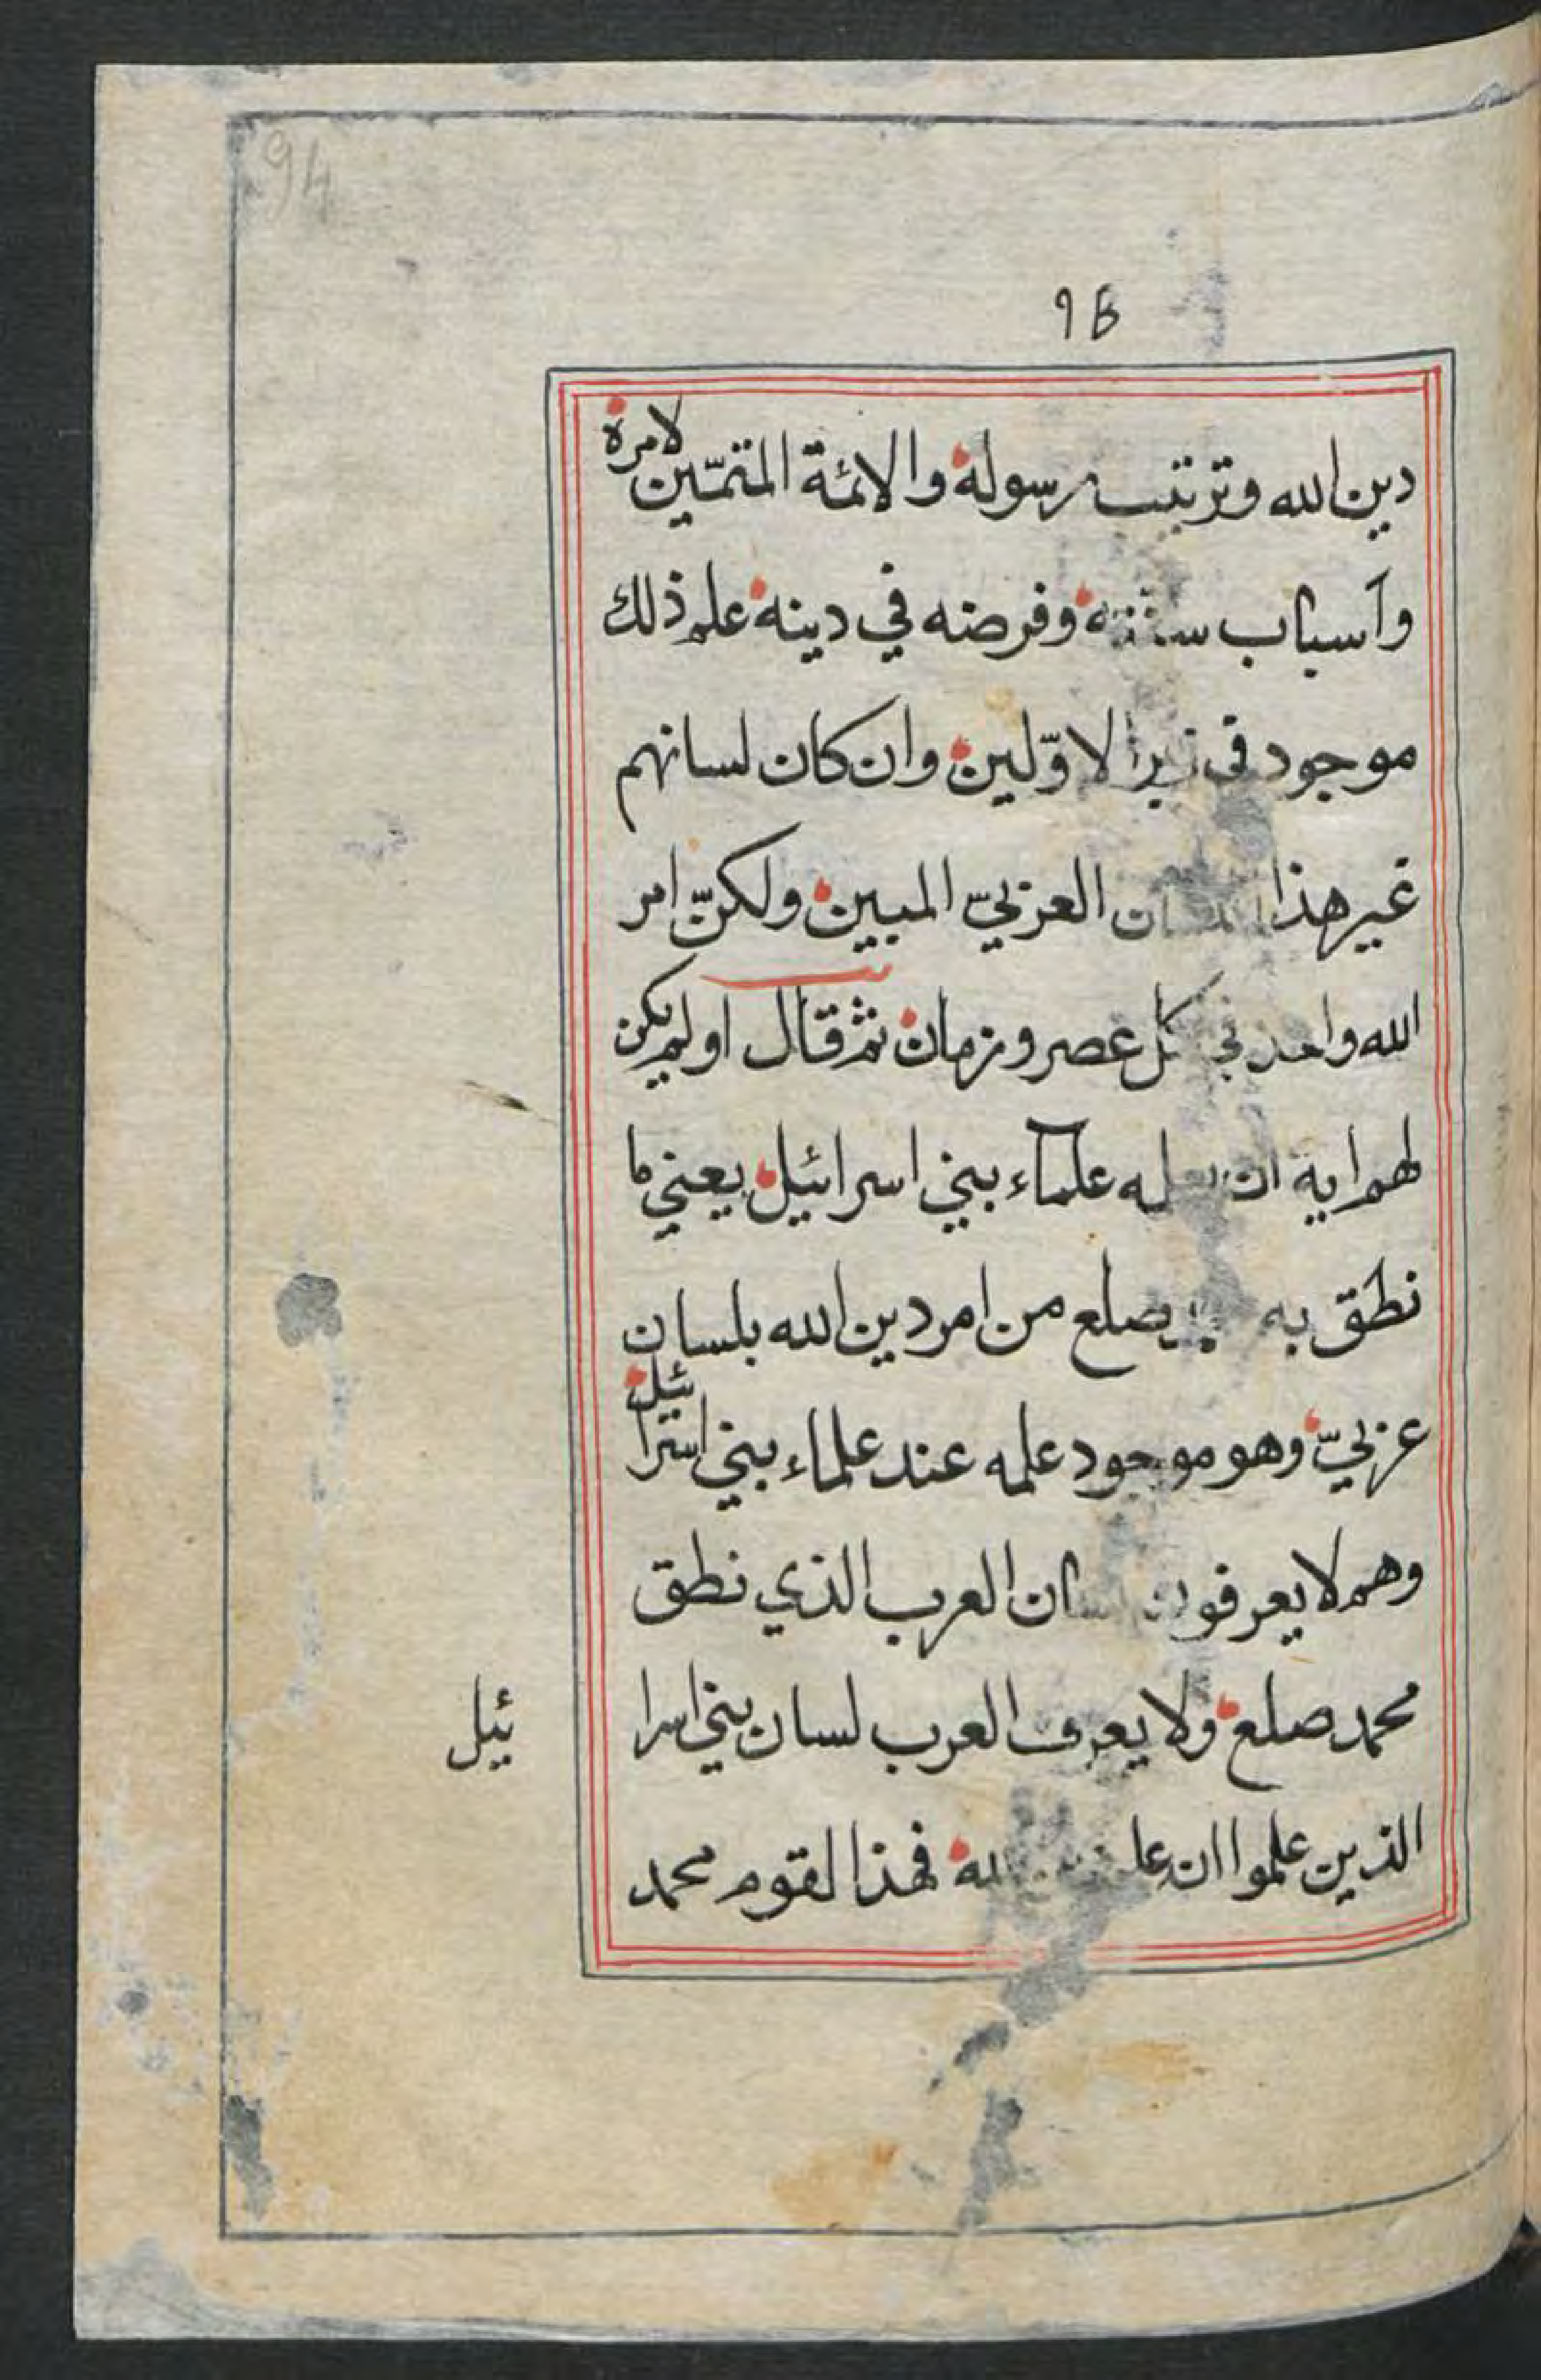 94
96
دين الله وترتيب رسوله والائمة المتمّين لامره
وأسباب سنته وفرضه في دينه علم ذلك
موجود في زبر الاوّلين وان كان لسانهم
غير هذا اللسان العربيّ المبين ولكنّ امر
الله واحد في كل عصر وزمان ثم قال اولم يكن
لهم اية ان يعلمه علماء بني اسرائيل يعني ما
نطق به صلع من امر دين الله بلسان
عربيّ وهو موجود علمه عند علماء بني اسرائيل
وهم لا يعرفون لسان العرب الذي نطق
محمد صلع ولا يعرف العرب لسان بني اسرا
ئيل
الذين علموا ان فهذا لقوم محمد